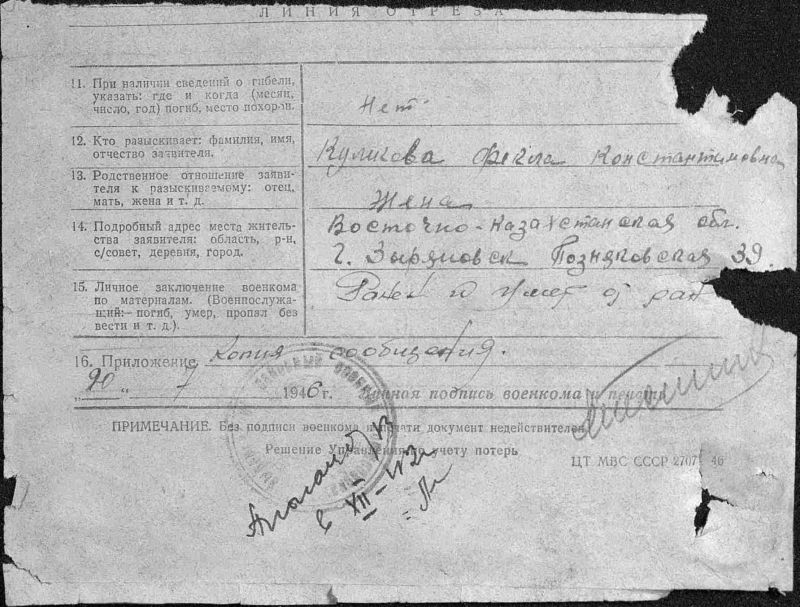 ЛИНИЯ ОТРЕЗА
11. При наличии сведений о гибели,
указать: где и когда (месяц,
число, год) погиб, место похорон.
Нет
12. Кто разыскивает: фамилия, имя,
отчество заявителя.
Куликова Фекла Константиновна
13. Родственное отношение заяви-
теля к разыскиваемому: отец,
мать, жена и т. д.
Жена
14. Подробный адрес места житель-
ства заявителя: область, р-н,
с/совет, деревня, город.
Восточно-Казахстанская обл.
г. Зыряновск Позняковская 39.
15. Личное заключение военкома
по материалам. (Военнослужа-
щий: погиб, умер, пропал без
вести и т. д.).
Ранен и умер от ран
16. Приложение Копия сообщения.
"20" 7 1946 г. Личная подпись военкома и печать
ПРИМЕЧАНИЕ. Без подписи военкома и печати документ недействителен
Решение Управления по учету потерь
ЦТ МВС СССР 2707 46
в XII-43г